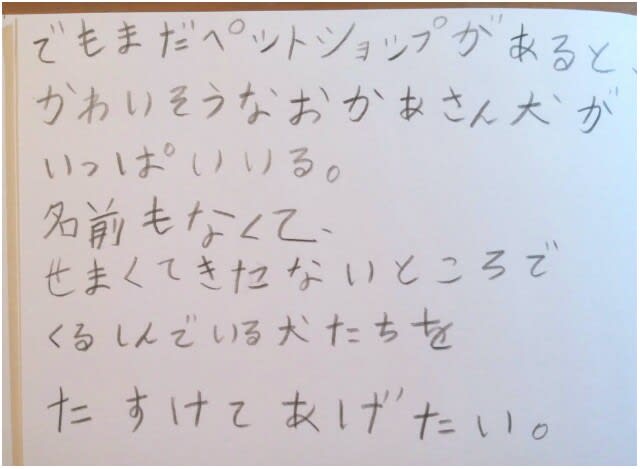 でもまだペットショップがあると、
かわいそうなおかあさん犬が
いっぱいいる。
名前もなくて、
せまくてきたないところで
くるしんでいる犬たちを
たすけてあげたい。